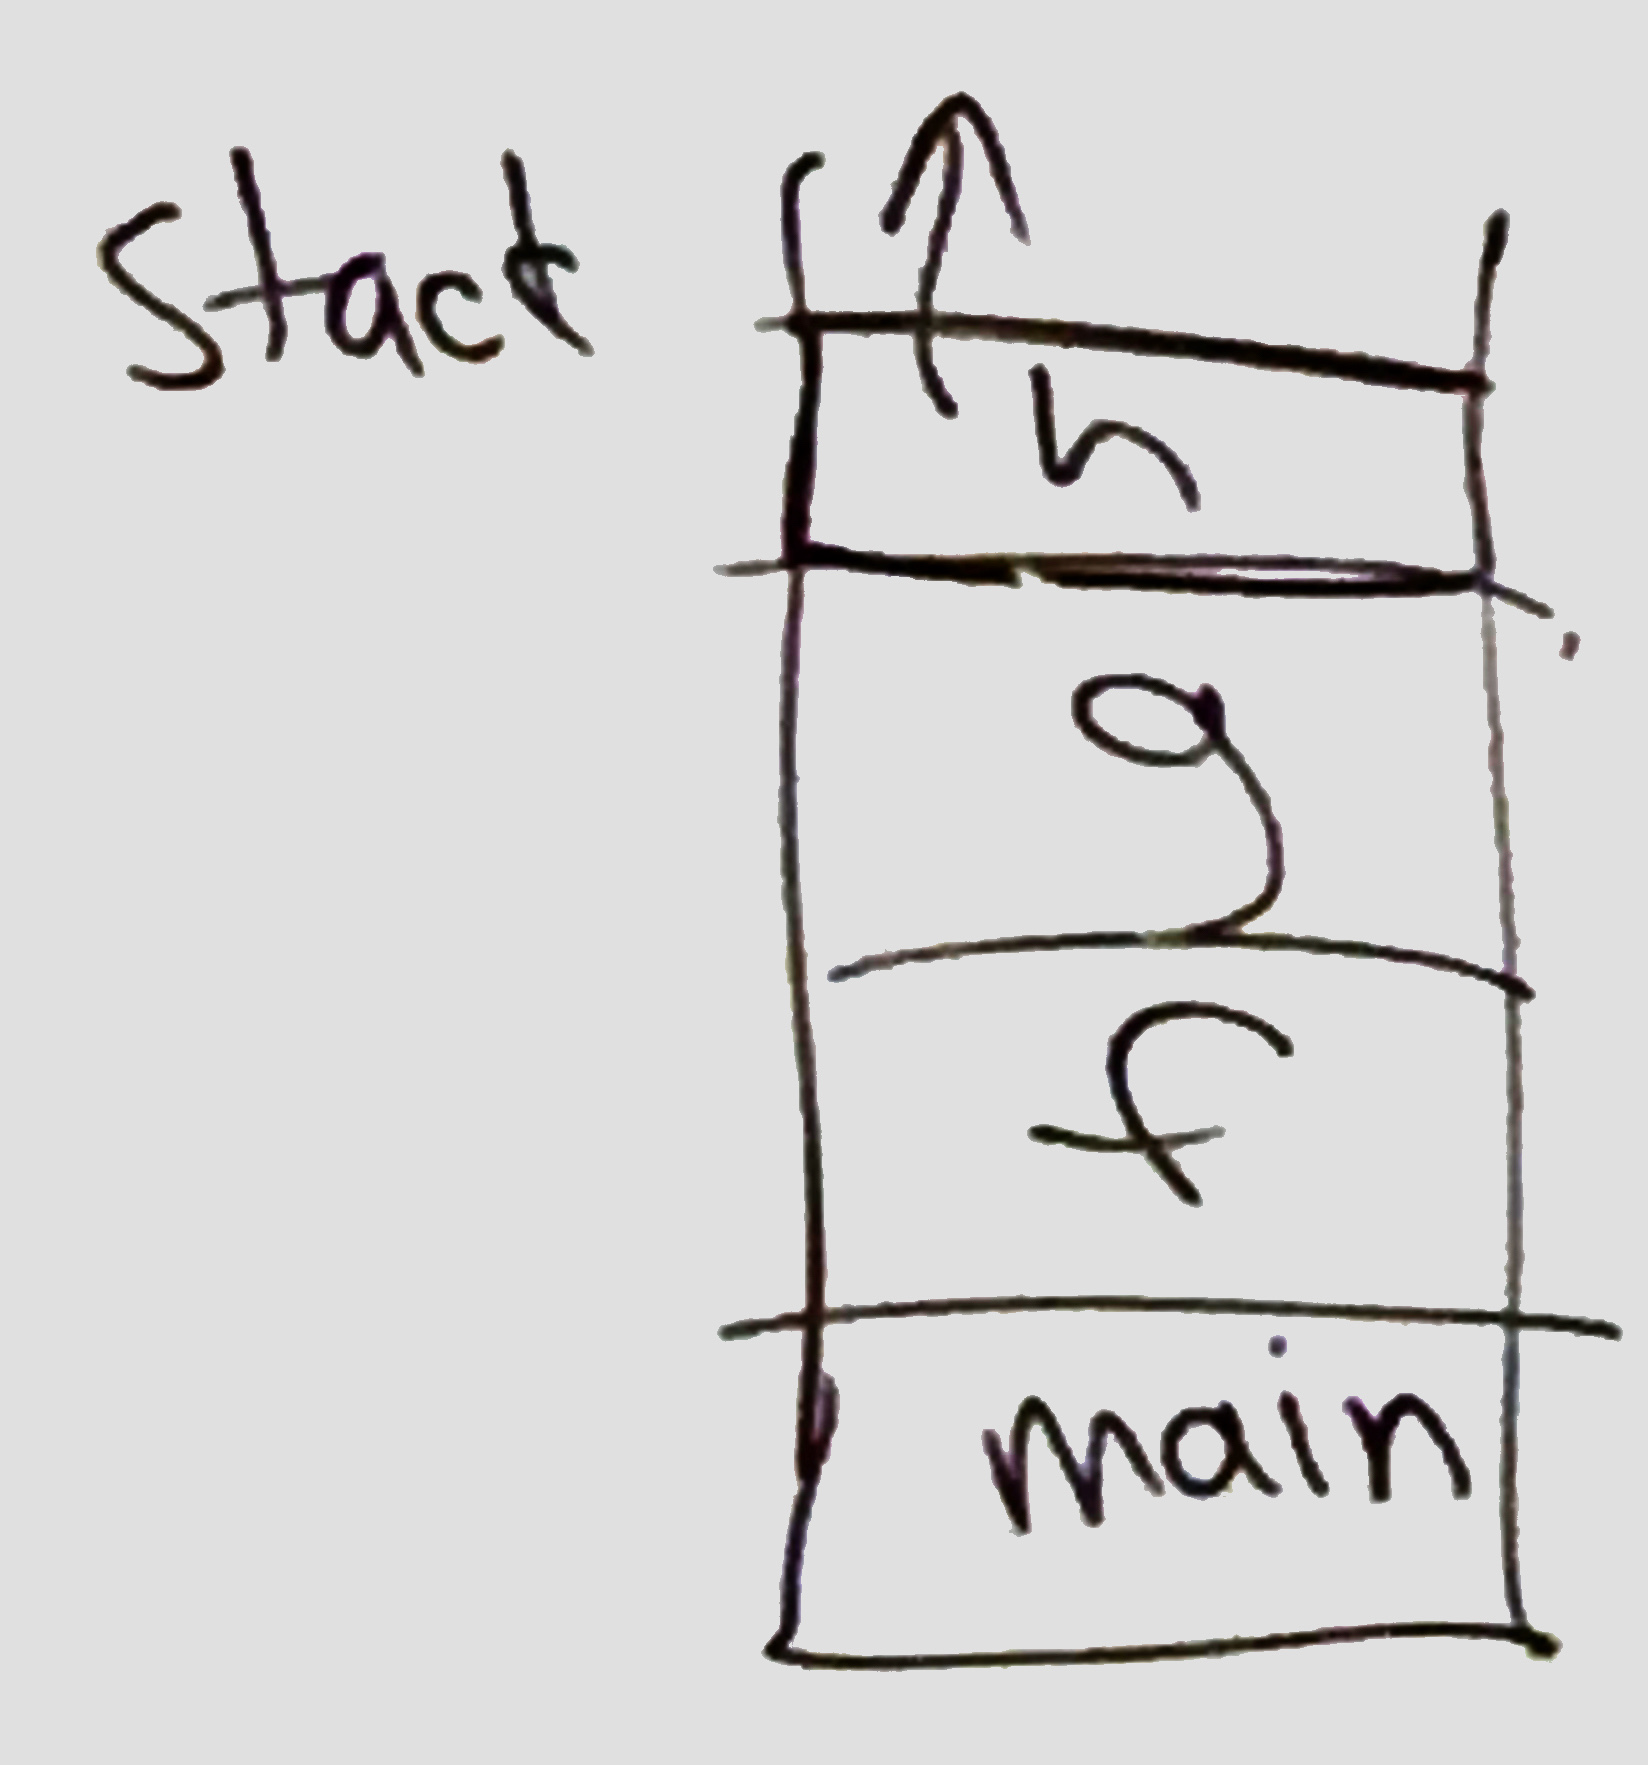 Stack
h
g
f
main